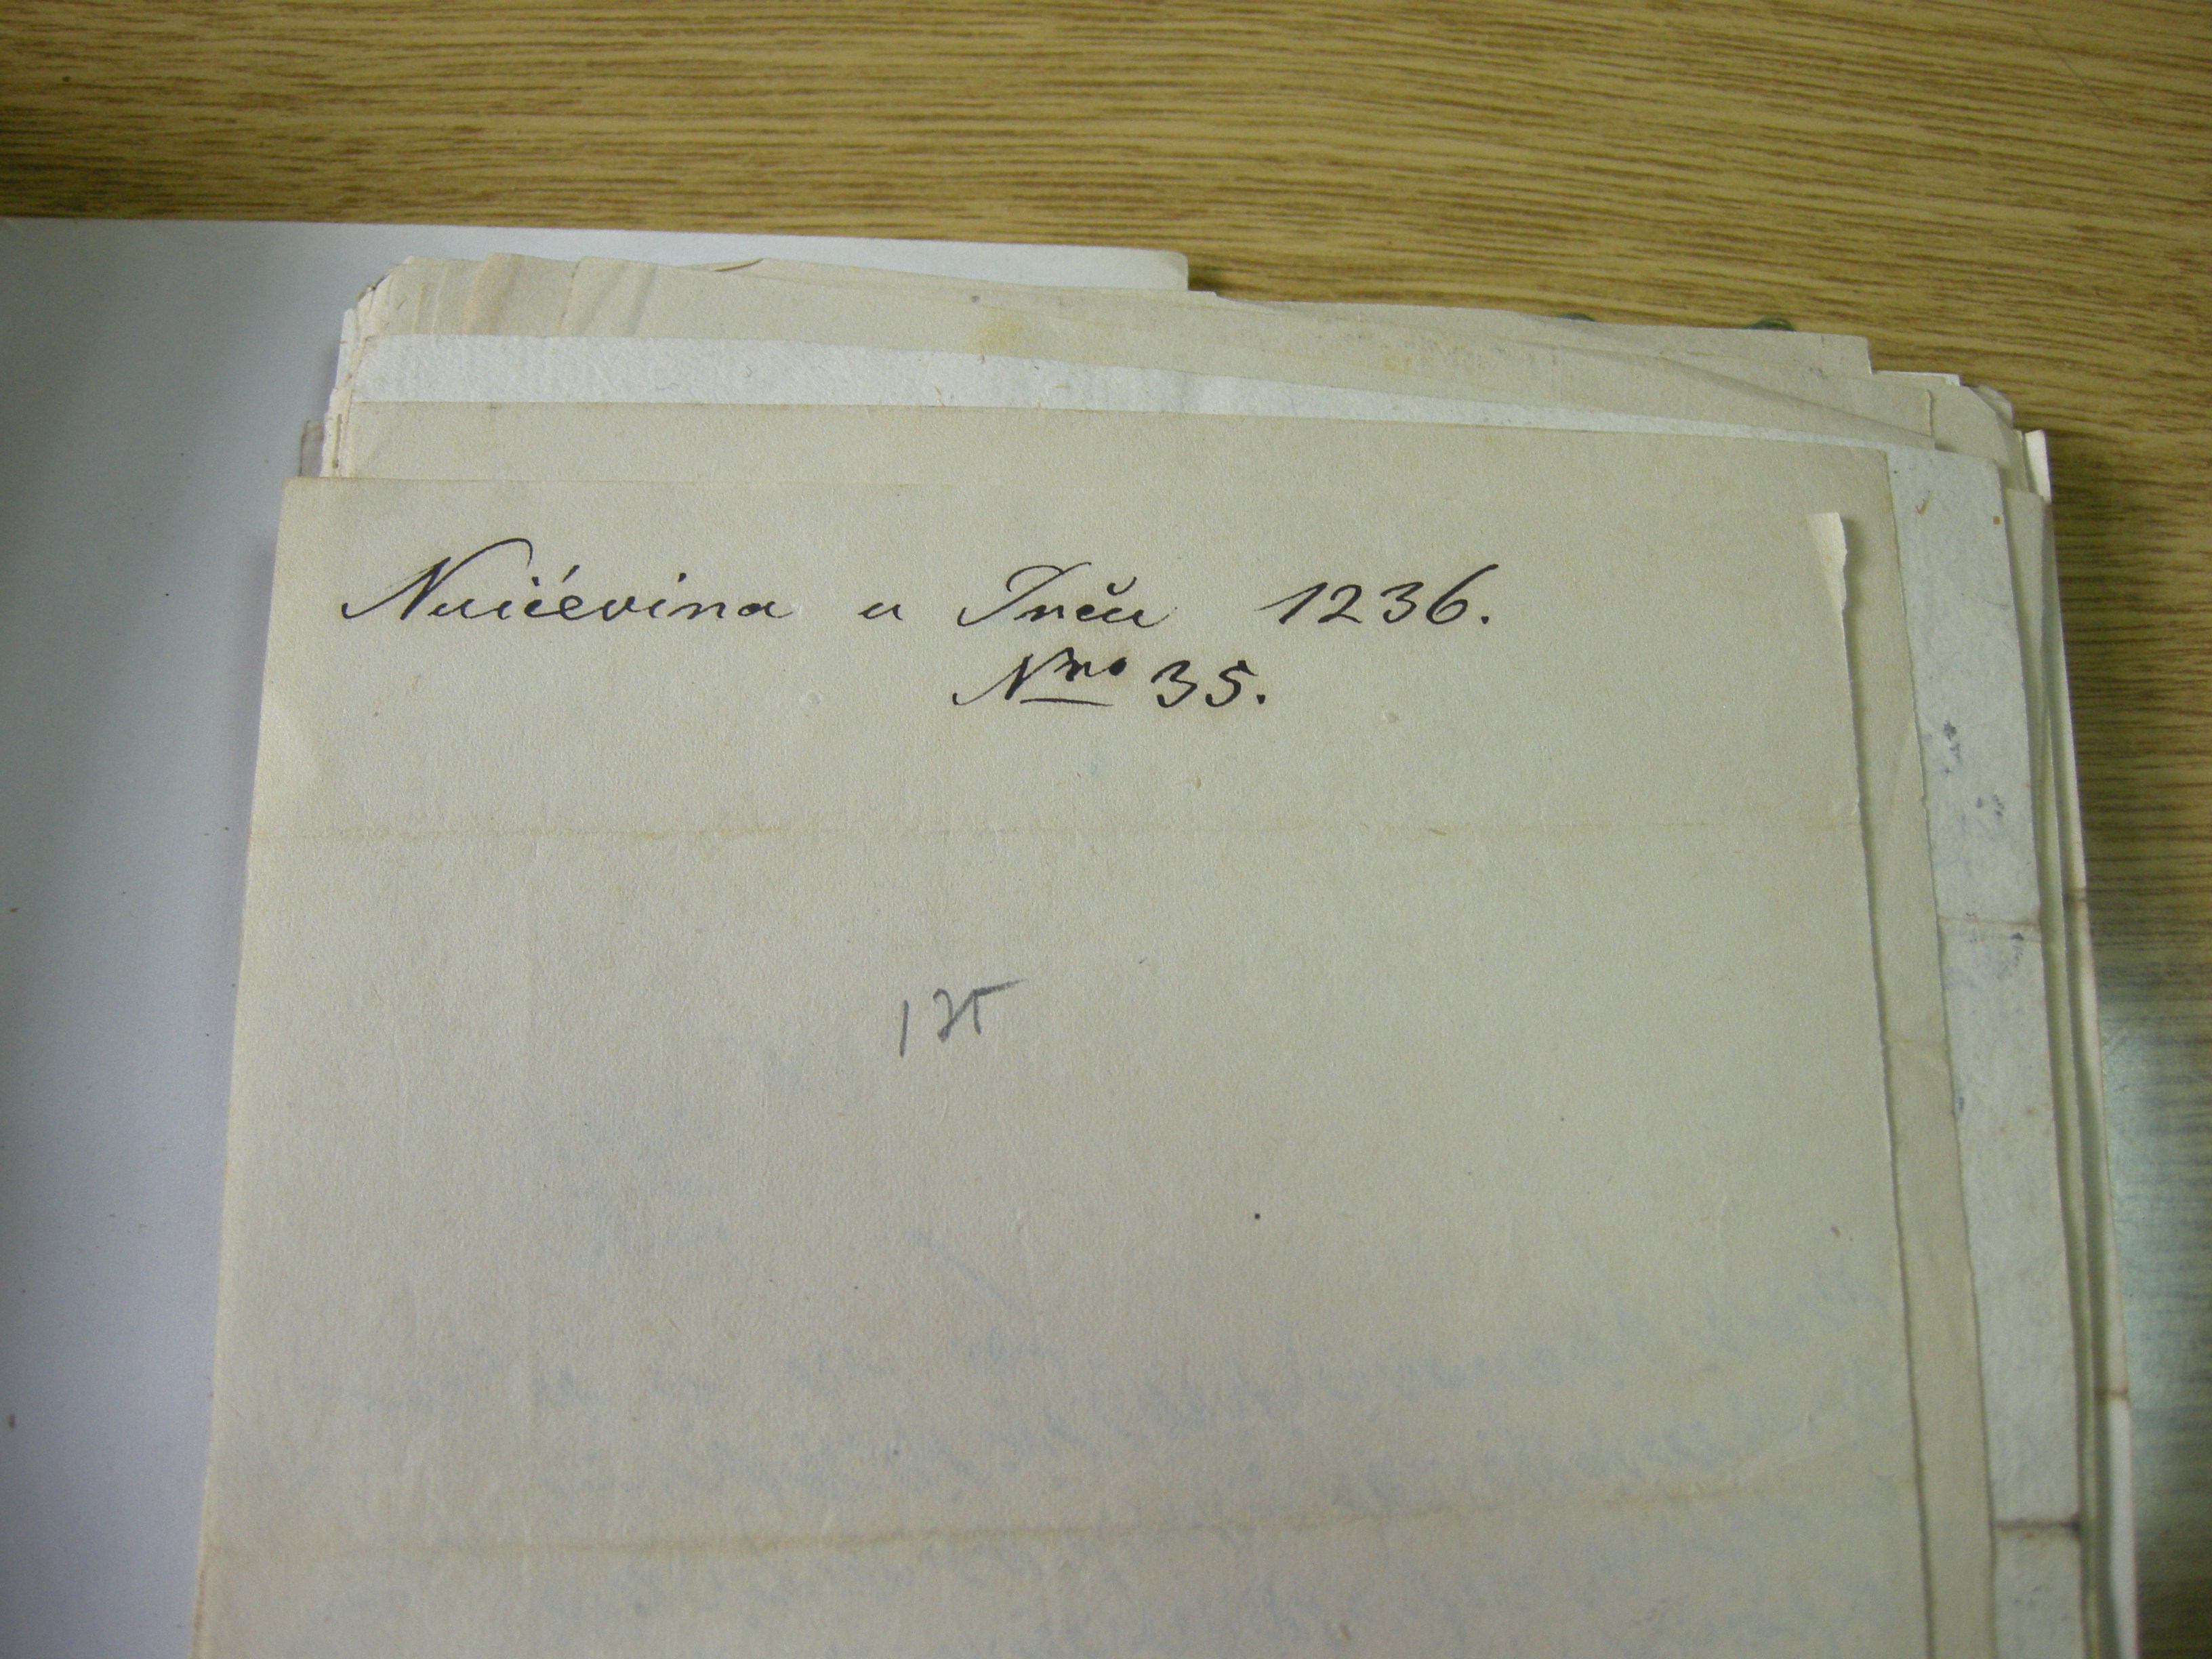 Nuićevina u Inču 1236.
Nro 35.
135